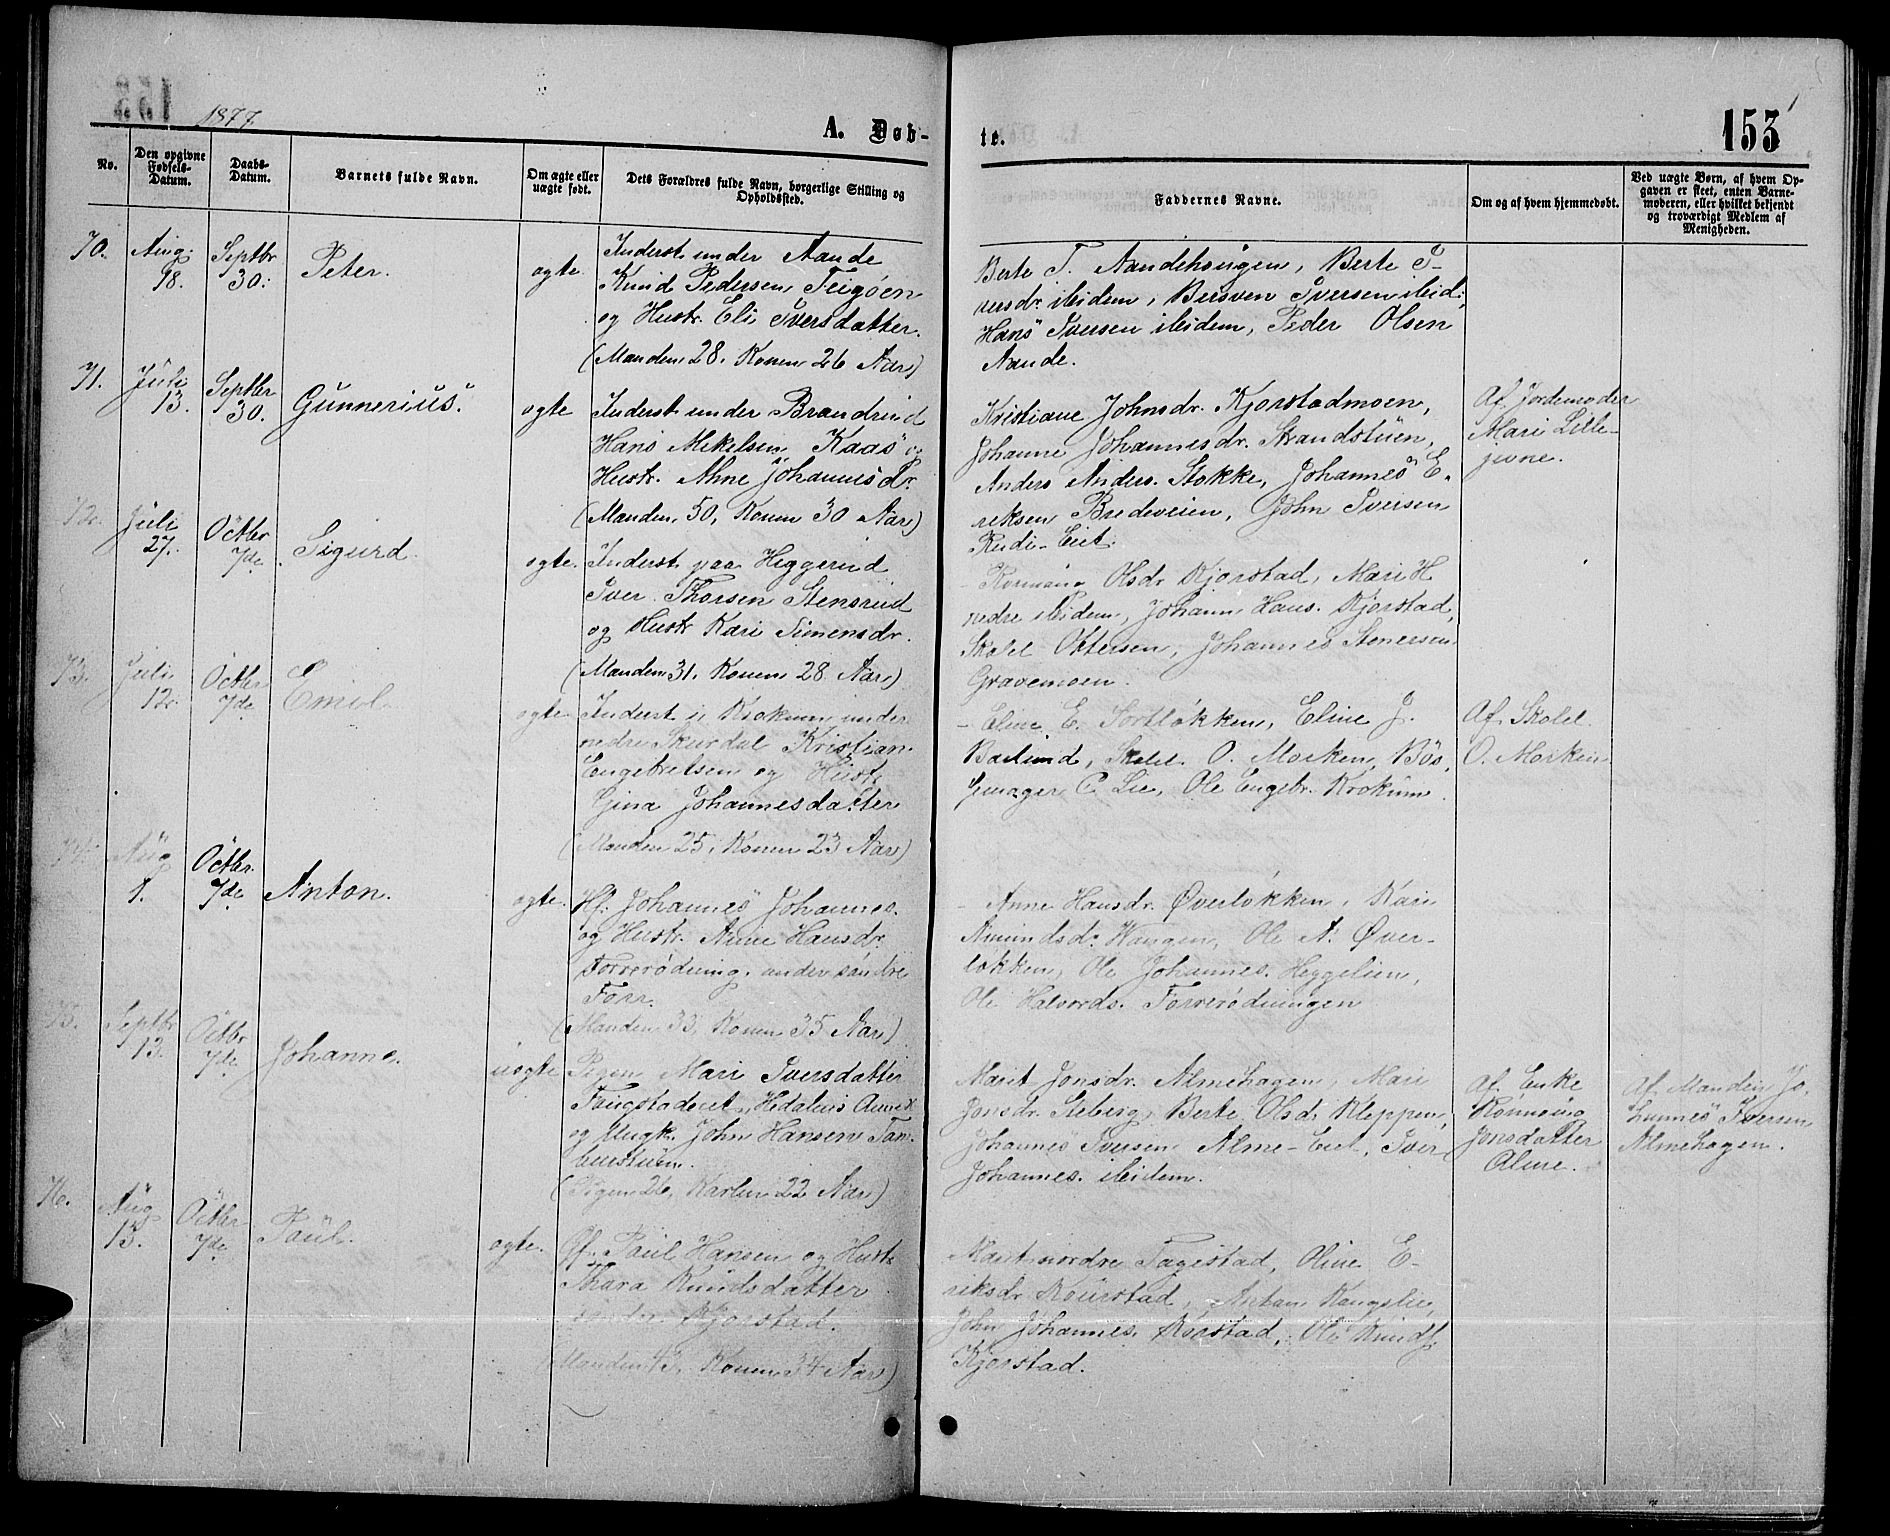 1877.
A. Døb-
te.
153
No.
Den opgivne Fødsels-Datum.
Daabs-Datum.
Barnets fulde Navn.
Om ægte eller uægte født.
Dets Forældres fulde Navn, borgerlige Stilling og Opholdssted.
Faddernes Navne.
Om og af hvem hjemmedøbt.
Ved uægte Børn, af hvem Op-
gaven er skeet, enten Barne-
moderen, eller hvilket bekjendt
og troværdigt Medlem af
Menigheden.
70.
Aug. 18.
Septbr 30.
Peter.
ægte
Inderst under Aande
Knud Pedersen Teigøen
og Hustr. Eli Iversdatter.
(Manden 28, Konen 26 Aar)
Berte T. Aandehougen, Berte I-
versdr. ibidem, Bersven Iversen ibid.
Hans Iversen ibidem, Peder Olsen
Aande.
71.
Juli 13.
Septbr 30.
Gunnerius.
ægte
Inderst under Brandrud
Hans Mikelsen Kaas og
Hustr. Anne Johannesdr.
(Manden 50, Konen 30 Aar)
Kristiane Johnsdr. Kjorstadmoen,
Johanne Johannesdr. Strandstuen,
Anders Anders. Stokke, Johannes E-
riksen Bredeveien, John Iversen
Rudi-Eiet.
Af Jordemoder
Mari Lille-
jevne.
72.
Juli 27.
Octbr 7de
Sigurd
ægte.
Inderst paa Heggerud
Iver Thorsen Stensrud
og Hustr Kari Simensdr.
(Manden 31, Konen 28 Aar)
Olsdr Kjorstad, Mari H.
nedre ibidem, Johann Hans. Kjorstad,
Skolel. Ottersen, Johannes Stenersen
Gravemoen.
73.
Juli 12.
Octbr 7de
Emil
ægte
Inderst i Krokum under
nedre Skurdal Kristian
Engebretsen og Hustr.
Gina Johannesdatter
(Manden 25, Konen 23 Aar)
Eline E. Sortløkken, Eline J.
Baulund, Skolel. O. Morken, Bøs-
semager C. Lie, Ole Engebr. Krokum.
Af Skolel.
O. Morken.
74.
Aug 1.
Octbr. 7de
Anton.
ægte.
Hf. Johannes Johannes.
og Hustr. Anne Hansdr.
Forrerødning. under søndre
Forr.
(Manden 33, Konen 35 Aar)
Anne Hansdr. Øverløkken, Kari
Amundsdr. Haugen, Ole A. Øver-
løkken, Ole Johannes. Heggelien,
Ole Halvords. Forrerødningen
75.
Septbr 13.
Octbr 7de
Johanne.
uægte
Pigen Mari Iversdatter
Faugstadeiet, Hedalens Annex
og Ungk. John Hansen Tam-
burstuen.
(Pigen 26, Karlen 22 Aar)
Marit Jonsdr. Almehagen, Mari
Jonsdr. Steberg, Berte Olsdr. Kleppen,
Johannes Iversen Alme-Eiet, Iver
Johannes. ibidem.
Af Enke
Rønnaug
Jonsdatter
Alme.
Af Manden Jo-
hannes Iversen
Almehagen.
76.
Aug 13.
Octbr 7de
Paul.
ægte.
Gf. Paul Hansen og Hustr.
Thara Knudsdatter
søndre Kjorstad.
(Manden 43, Konen 34 Aar)
Marit nordre Tagestad, Oline E-
riksdr Kourstad, Antam Kongslie,
John Johannes. Korstad, Ole Knuds.
Kjorstad.